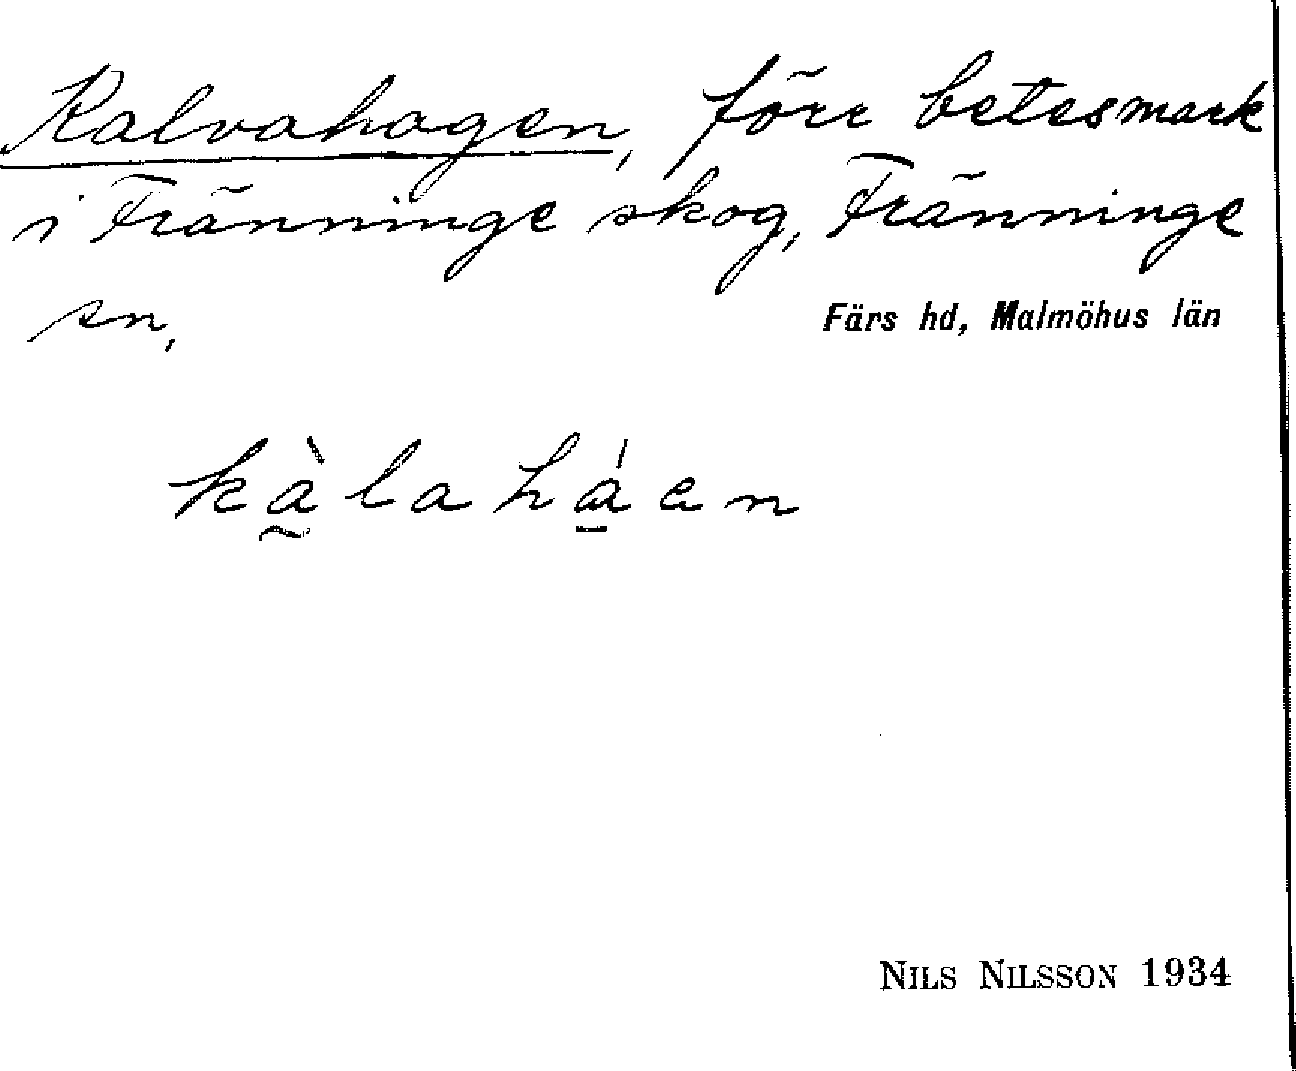 Kalvahagen, förr betesmark
i Fränninge skog, Fränninge
sn, Färs hd, Malmöhus län
kà̰lahá̱en
NILS NILSSON 1934